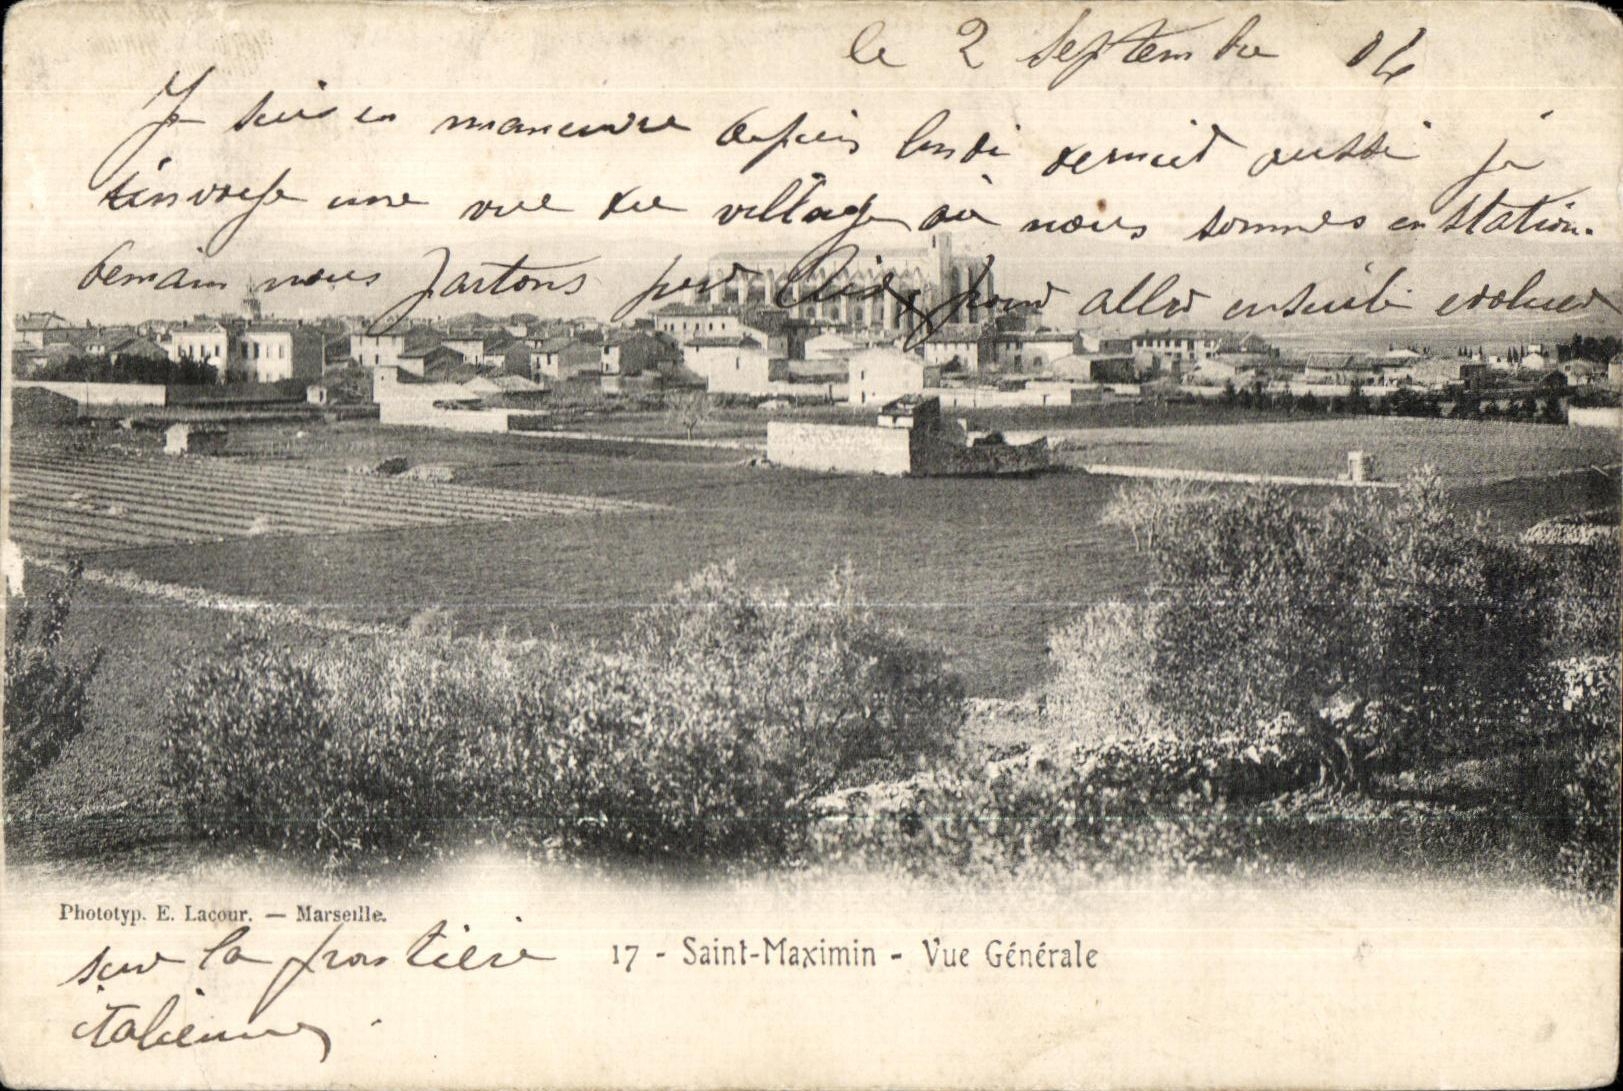 le 2 septembre 04
Je suis en maneuvre depuis lundi dernier aussi je
t'envoye une vue du village où nous sommes en station.
demain nous partons pour Aix pour aller ensuite evoluer
Phototyp. E. Lacour. — Marseille.
sur la frontière
italienne.
17 - Saint-Maximin - Vue Générale